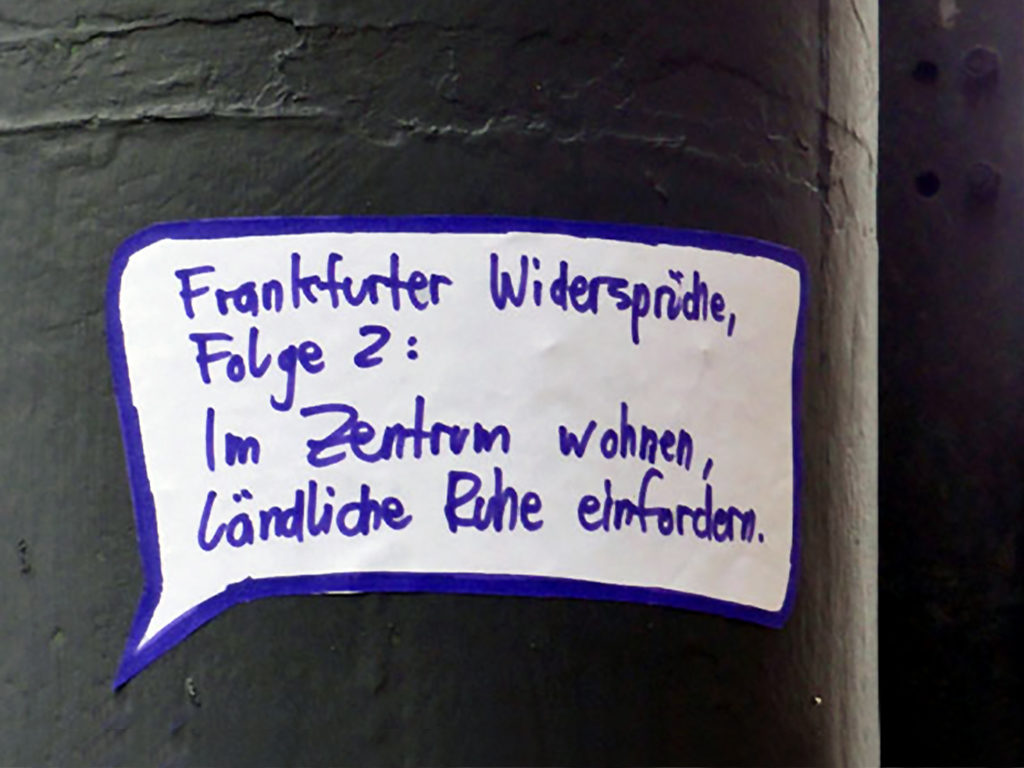 Frankfurter Widersprüche,
Folge 2:
Im Zentrum wohnen,
ländliche Ruhe einfordern.